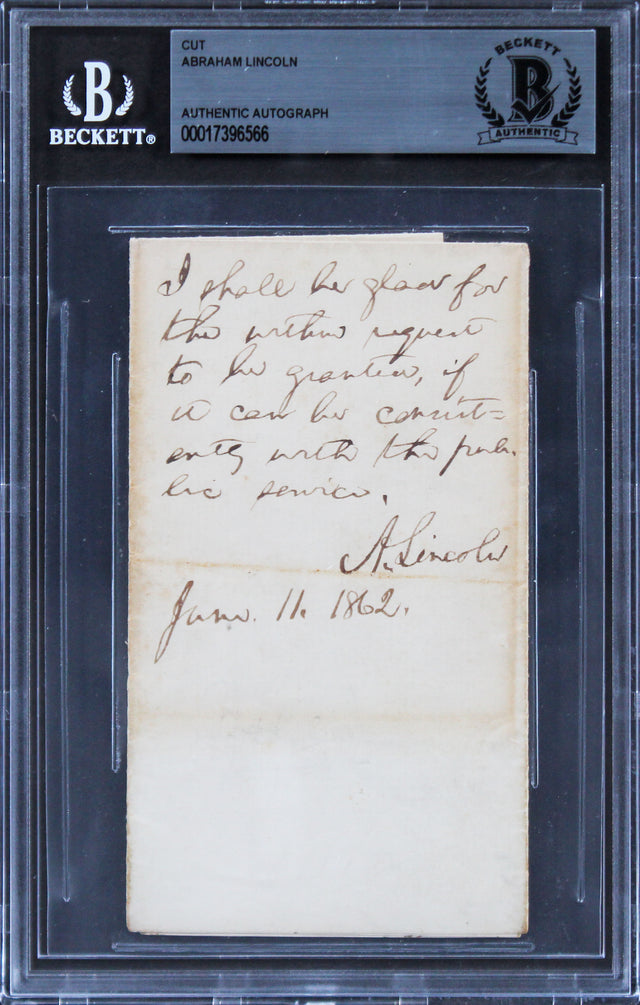 B
BECKETT®
CUT
ABRAHAM LINCOLN
AUTHENTIC AUTOGRAPH
00017396566
BECKETT
B
AUTHENTIC
I shall be glad for
the within request
to be granted, if
it can be consist=
ently with the pub-
lic service.
A. Lincoln
June. 11. 1862.